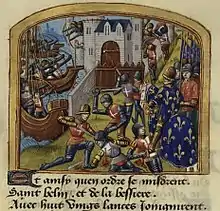 Et ainsy quen ordre se misdrent.
Saint belin, et de la bessiere.
Avec huit vings lances Joingnirent.